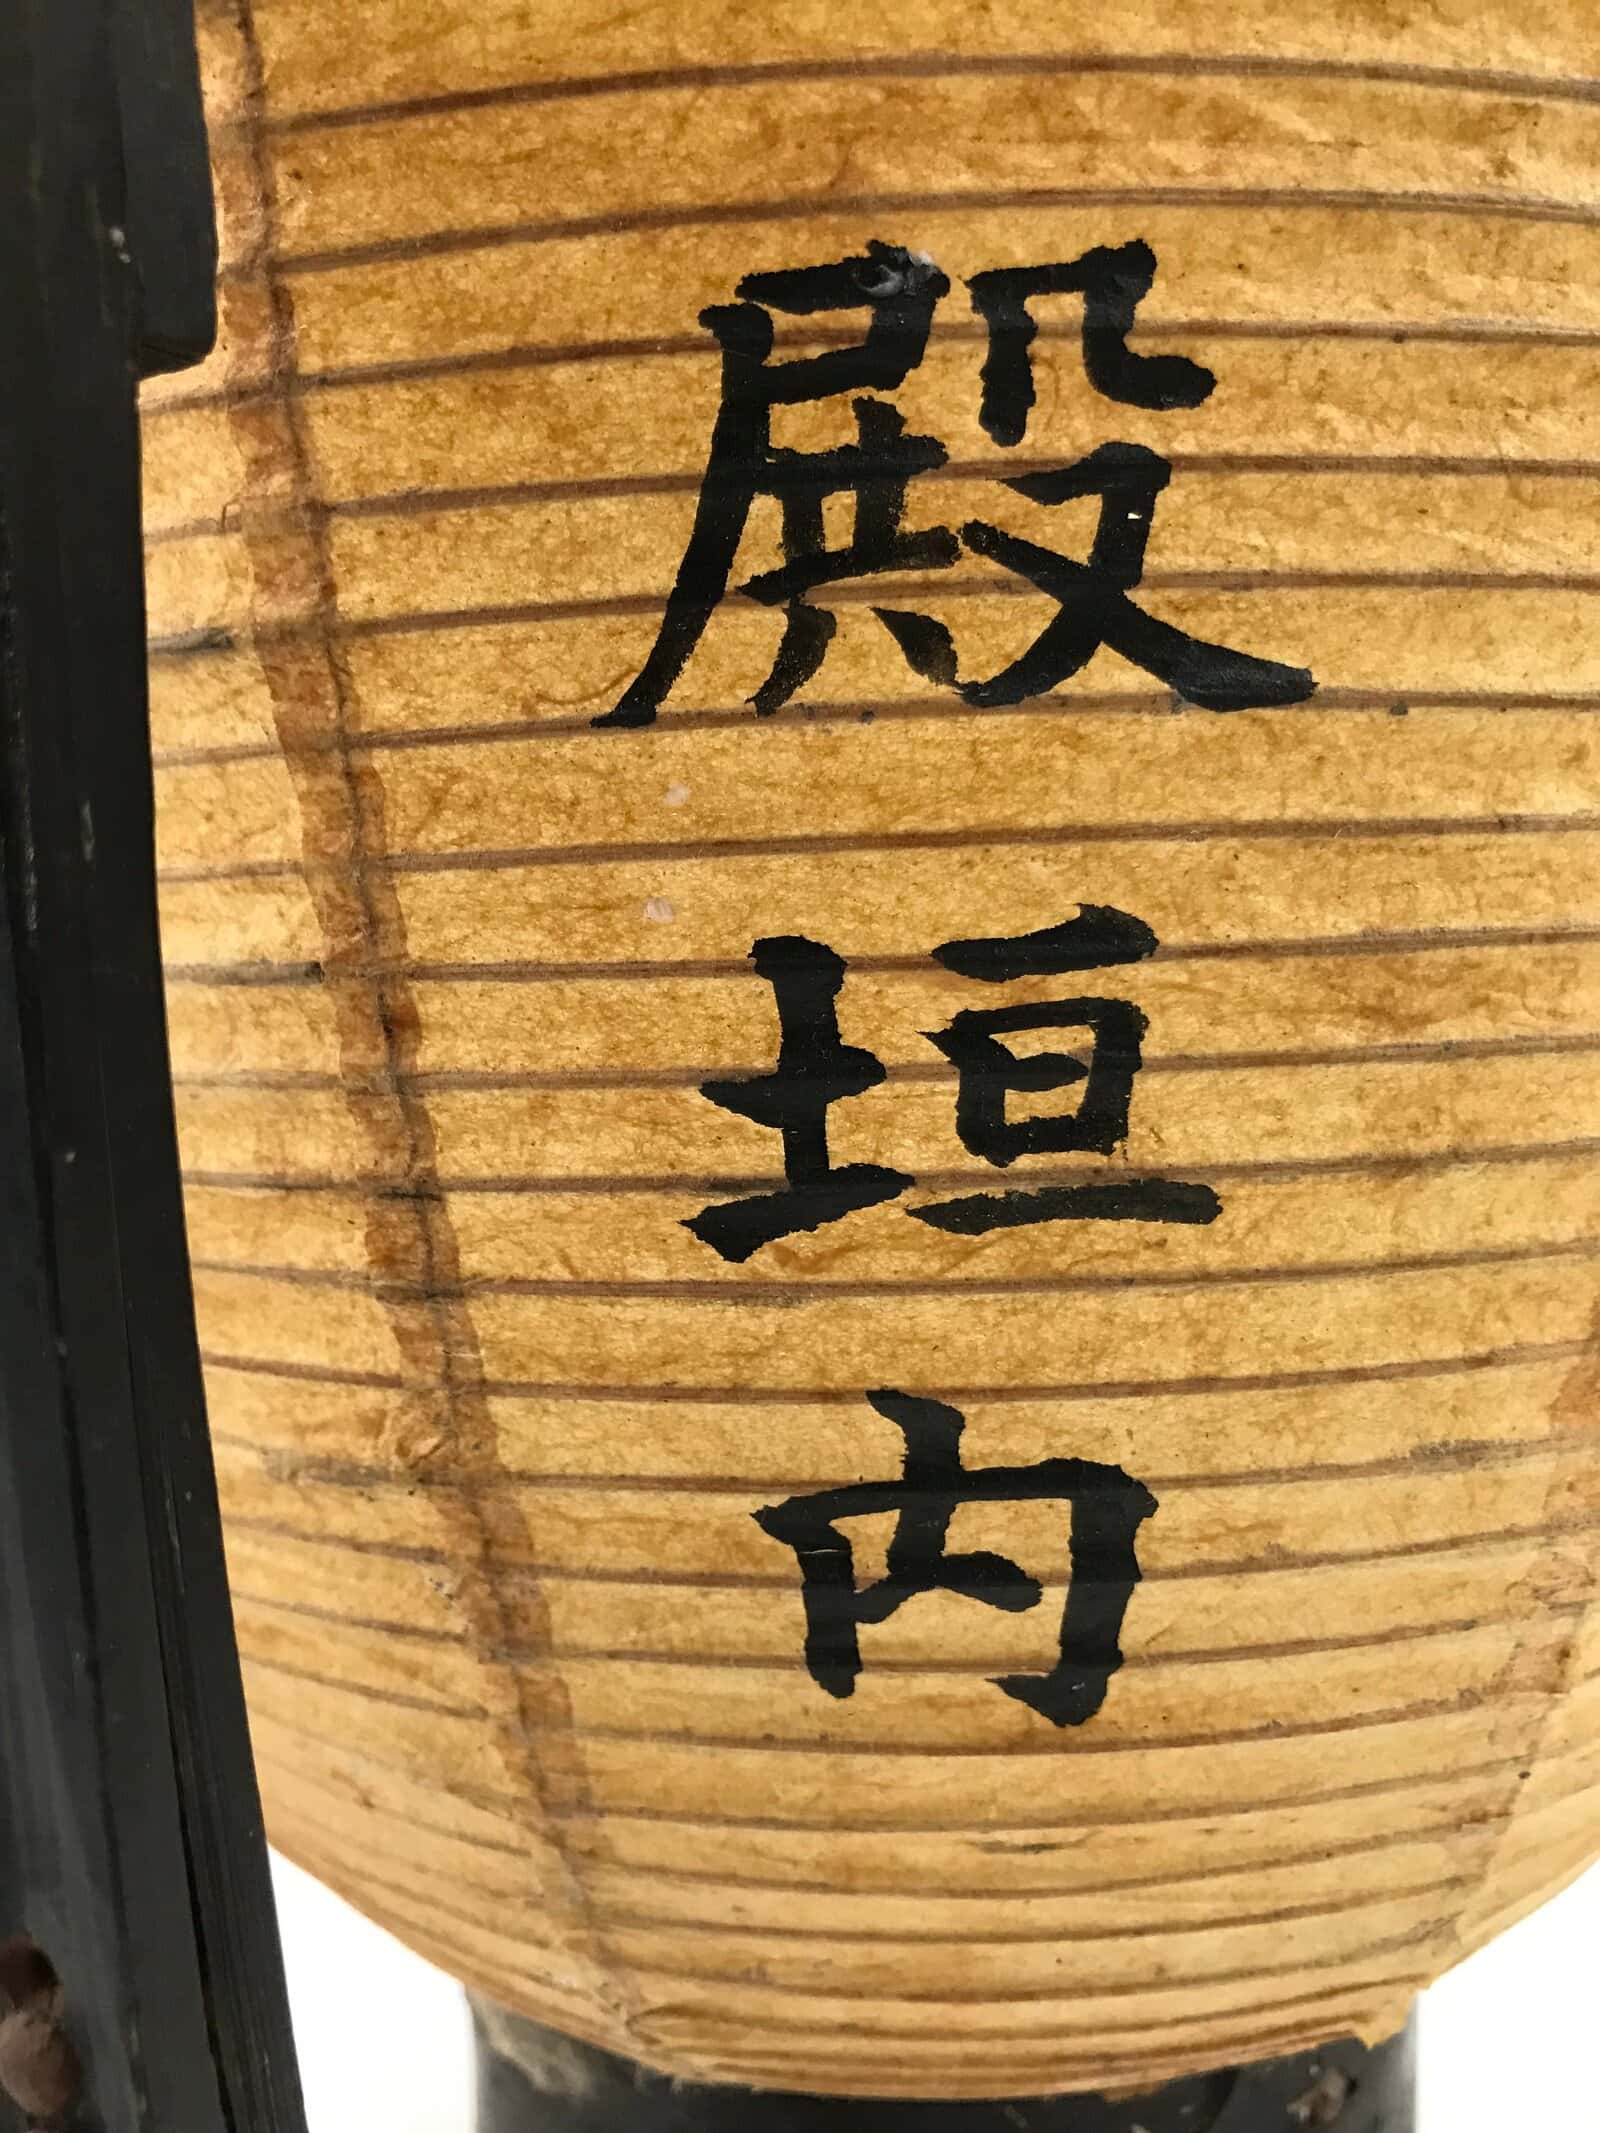 殿垣内